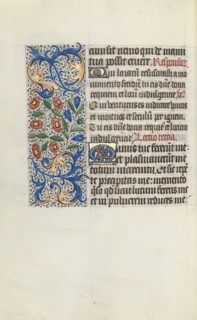 cum sit nemo qui de manu
tua possit eruere. Responsor.
Qui lazarum resuscitasti a mo
numento fetidum tu eis dñe dona
requiem et locum indulgentie.
Qui venturus es iudicare vivos
et mortuos et seculum per ignem.
Tu eis dñe dona requiē et locum
indulgentie. Lectio tercia.
Manus tue fecerūt me:
et plasmaverunt me
totum in circuitu, et sic repē
te precipitas me: memento
queso qd sicut lutum feceris me
et in pulverem reduces me.